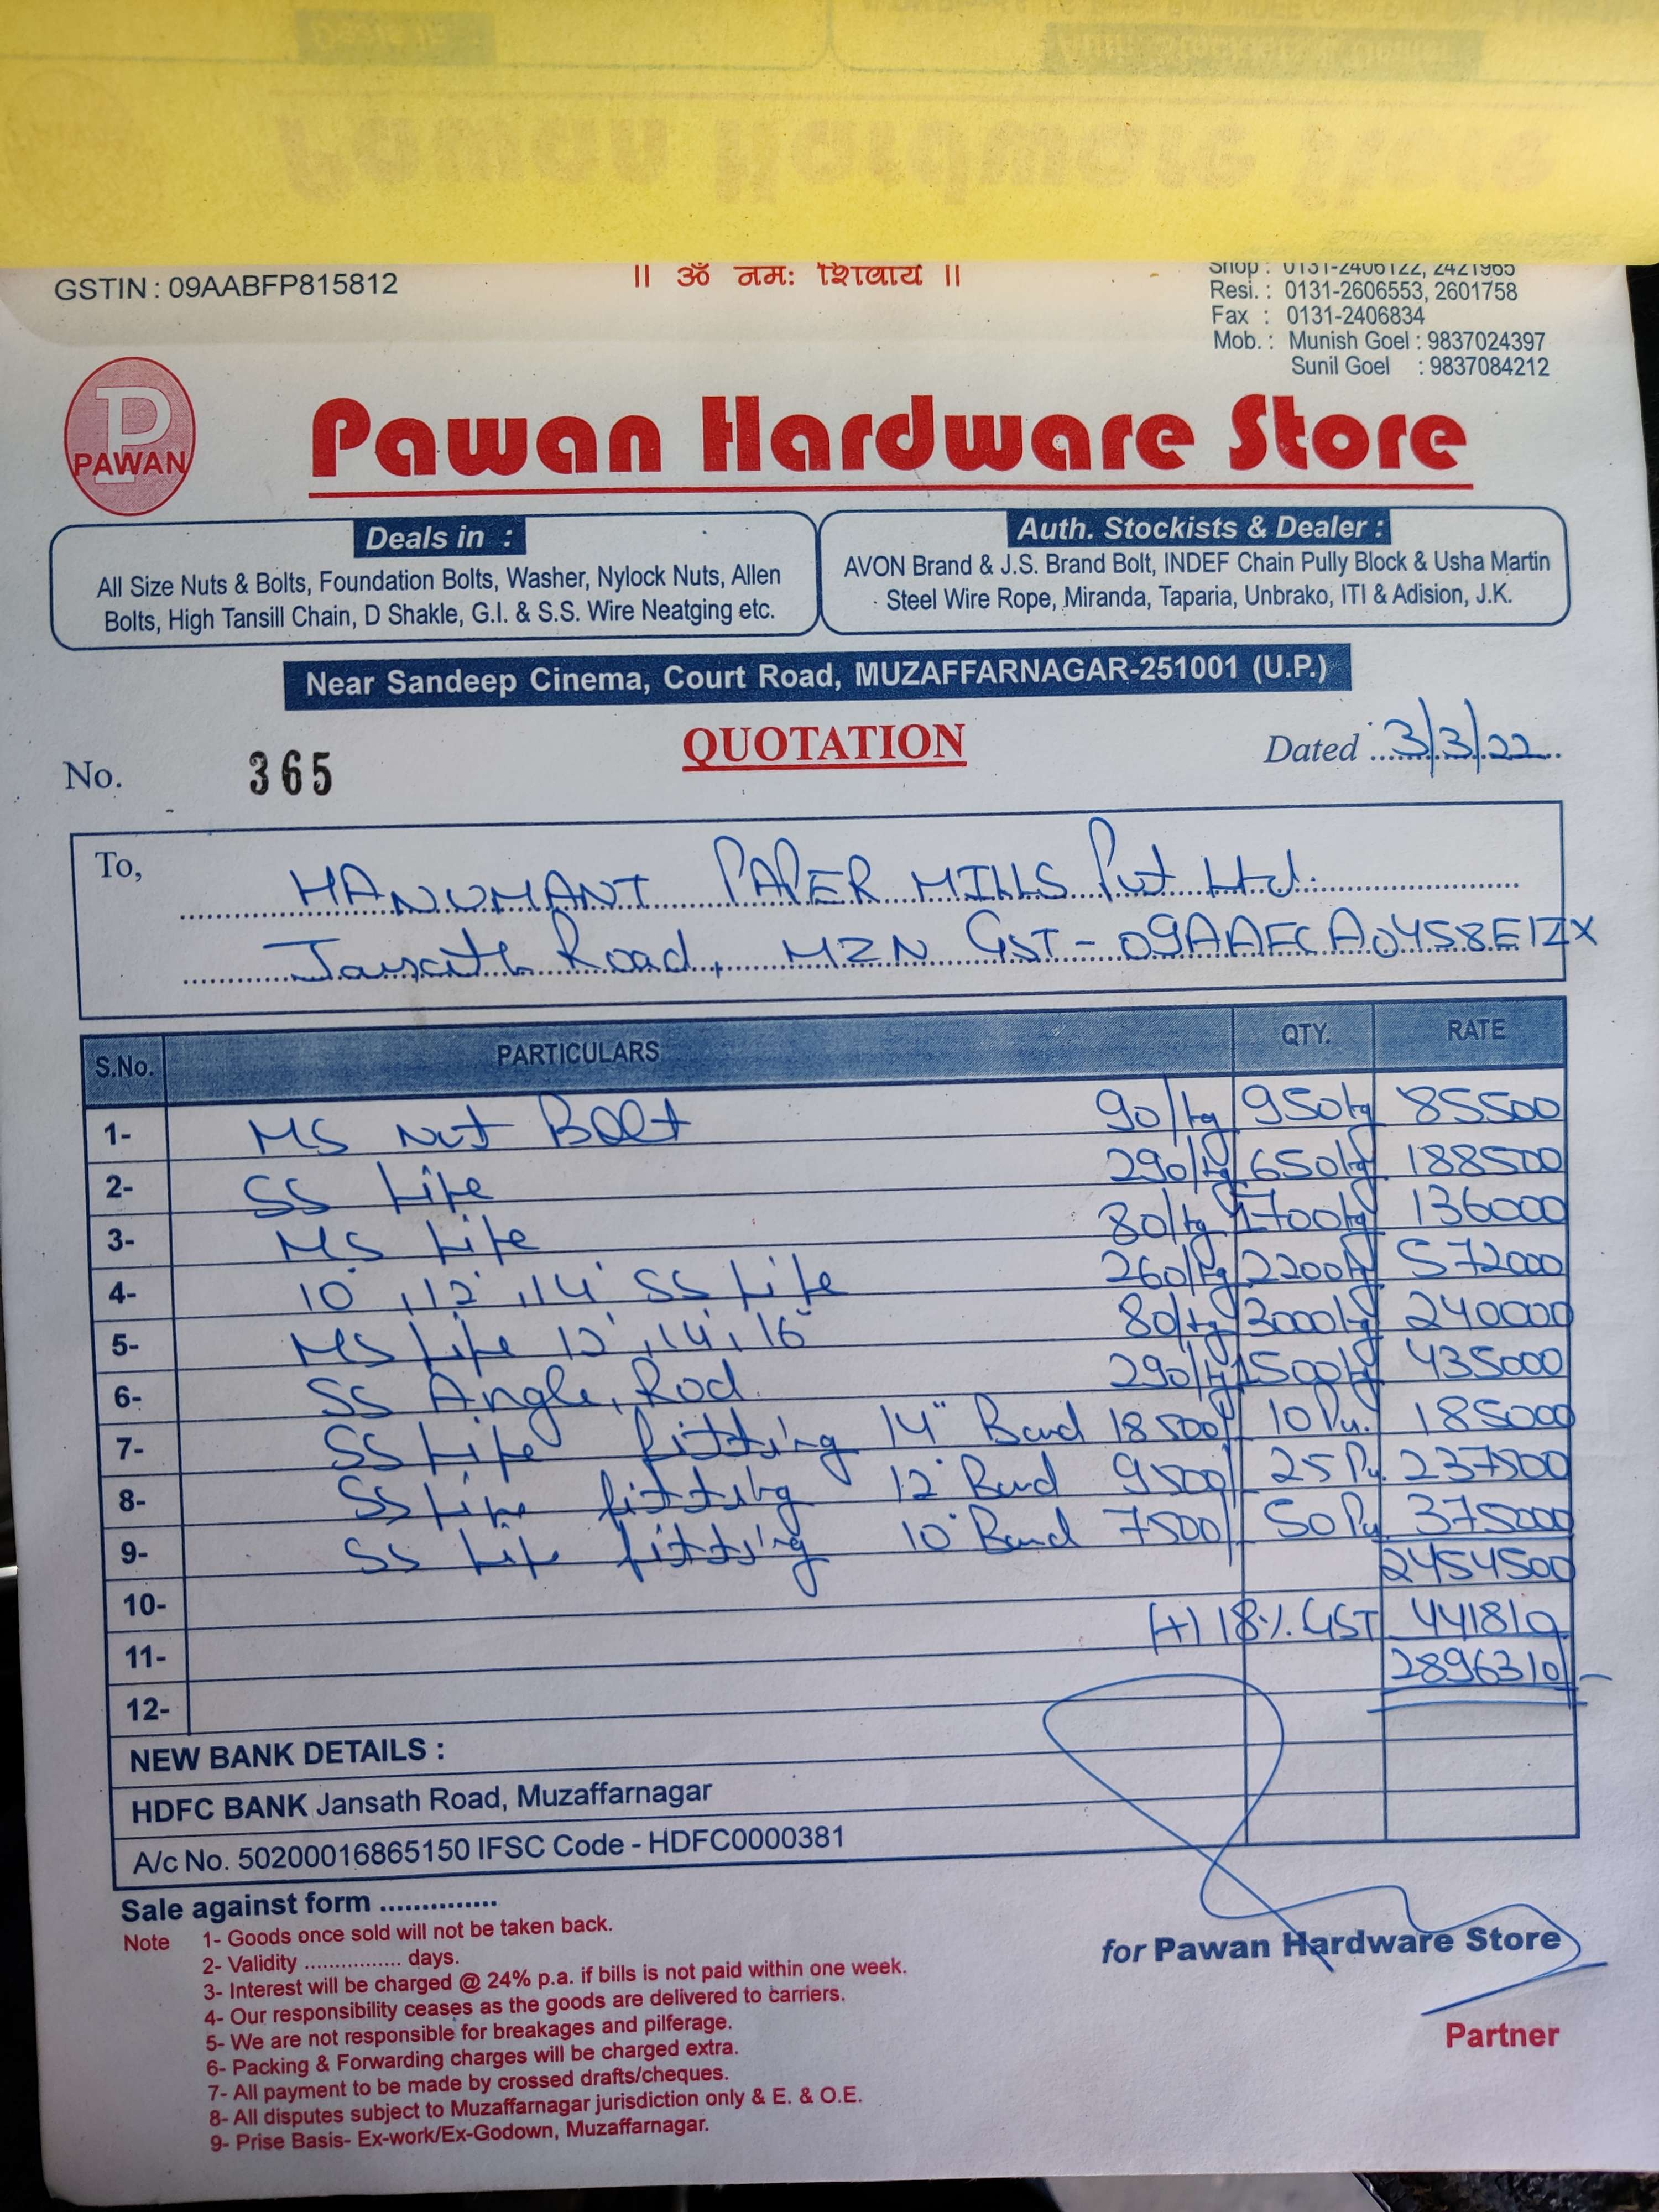 GSTIN : 09AABFP815812
|| ॐ नमः शिवाय ||
Shop : 0131-2406122, 2421965
Resi. : 0131-2606553, 2601758
Fax : 0131-2406834
Mob. : Munish Goel : 9837024397
Sunil Goel : 9837084212
PAWAN
Pawan Hardware Store
Deals in :
All Size Nuts & Bolts, Foundation Bolts, Washer, Nylock Nuts, Allen
Bolts, High Tansill Chain, D Shakle, G.I. & S.S. Wire Neatging etc.
Auth. Stockists & Dealer :
AVON Brand & J.S. Brand Bolt, INDEF Chain Pully Block & Usha Martin
Steel Wire Rope, Miranda, Taparia, Unbrako, ITI & Adision, J.K.
Near Sandeep Cinema, Court Road, MUZAFFARNAGAR-251001 (U.P.)
No. 365
QUOTATION
Dated 3/3/22
To, HANUMANT PAPER MILLS Pvt Ltd.
Jansath Road, MZN GST - 09AAFCA0458E1ZX
S.No. PARTICULARS QTY. RATE
1- MS Nut Bolt 90/kg 950kg 85500
2- SS Pipe 290/kg 650kg 188500
3- MS Pipe 80/kg 1700kg 136000
4- 10", 12", 14" SS Pipe 260/kg 2200kg 572000
5- MS Pipe 12", 14", 16" 80/kg 3000kg 240000
6- SS Angle, Rod 290/kg 1500kg 435000
7- SS Pipe fitting 14" Band 18500/- 10 Pc. 185000
8- SS Pipe fitting 12" Band 9500/- 25 Pc. 237500
9- SS Pipe fitting 10" Band 7500/- 50 Pc. 375000
2454500
10- (+) 18% GST 441810
11- 2896310/-
12-
NEW BANK DETAILS :
HDFC BANK Jansath Road, Muzaffarnagar
A/c No. 50200016865150 IFSC Code - HDFC0000381
Sale against form ...............
Note 1- Goods once sold will not be taken back.
2- Validity ................ days.
3- Interest will be charged @ 24% p.a. if bills is not paid within one week.
4- Our responsibility ceases as the goods are delivered to carriers.
5- We are not responsible for breakages and pilferage.
6- Packing & Forwarding charges will be charged extra.
7- All payment to be made by crossed drafts/cheques.
8- All disputes subject to Muzaffarnagar jurisdiction only & E. & O.E.
9- Prise Basis- Ex-work/Ex-Godown, Muzaffarnagar.
for Pawan Hardware Store
Partner